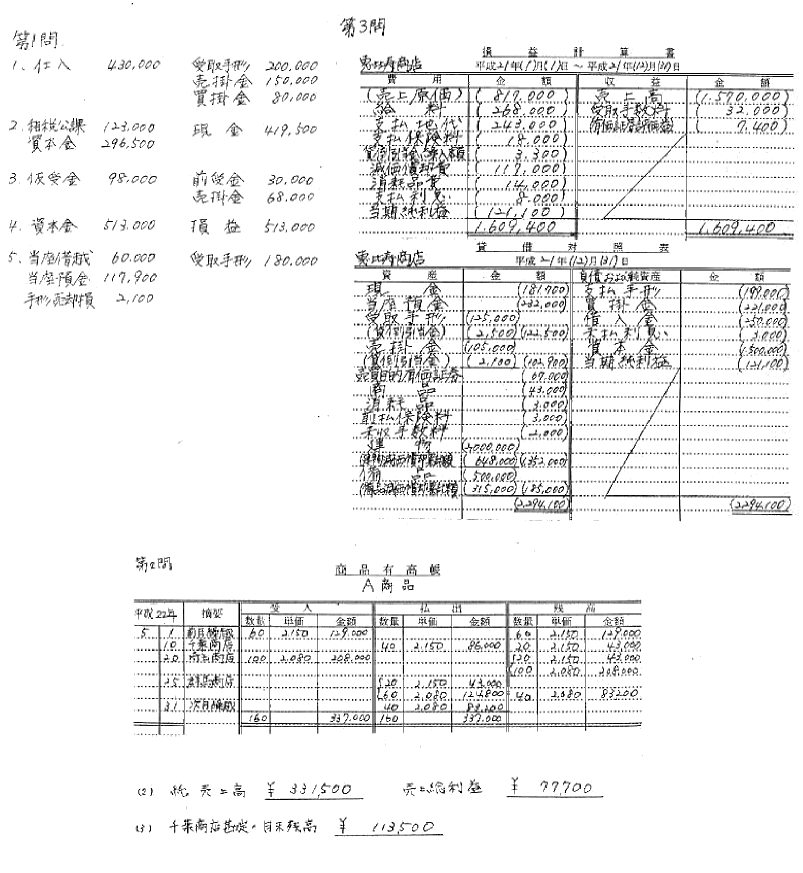 第1問
1、仕入 430,000 受取手形 200,000
売掛金 150,000
買掛金 80,000
2. 租税公課 123,000 現金 419,500
資本金 296,500
3. 仮受金 98,000 前受金 30,000
売掛金 68,000
4. 資本金 513,000 損益 513,000
5. 当座借越 60,000 受取手形 180,000
当座預金 117,900
手形売却損 2,100
第3問
損益計算書
恵比寿商店 平成21年(1)月(1)日～平成21年(12)月(31)日
費用 金額 収益 金額
(売上原価) (817,000) 売上高 (1,570,000)
給料 (268,000) 受取手数料 (32,000)
支払地代 (243,000) (7,400)
支払保険料 (18,000)
貸倒引当金繰入額 (3,300)
減価償却費 (117,000)
消耗品費 (14,000)
支払利息 (8,000)
当期純利益 (121,100)
1,609,400 1,609,400
貸借対照表
恵比寿商店 平成21年(12)月(31)日
資産 金額 負債および純資産 金額
現金 (181,700) 支払手形 (199,000)
当座預金 (232,000) 買掛金 (221,000)
受取手形 (125,000) 借入金 (250,000)
(貸倒引当金) (2,500) (122,500) 未払利息 (3,000)
売掛金 (105,000) 資本金 (1,500,000)
(貸倒引当金) (2,100) (102,900) 当期純利益 (121,100)
売買目的有価証券 (69,000)
商品 (43,000)
消耗品 (3,000)
前払保険料 (3,000)
未収手数料 (2,000)
建物 (2,000,000)
(建物)減価償却累計額 (648,000) (1,352,000)
備品 (500,000)
(備品)減価償却累計額 (315,000) (185,000)
(2,294,100) (2,294,100)
第2問
商品有高帳
A商品
平成22年 摘要 受入 払出 残高
数量 単価 金額 数量 単価 金額 数量 単価 金額
5 1 前月繰越 60 2,150 129,000 60 2,150 129,000
10 千葉商店 40 2,150 86,000 20 2,150 43,000
20 埼玉商店 100 2,080 208,000 {20 2,150 43,000
{100 2,080 208,000
25 群馬商店 {20 2,150 43,000
{60 2,080 124,800 40 2,080 83,200
31 次月繰越 40 2,080 83,200
160 337,000 160 337,000
(2) 純売上高 ¥ 331,500 売上総利益 ¥ 77,700
(3) 千葉商店勘定の月末残高 ¥ 113,500